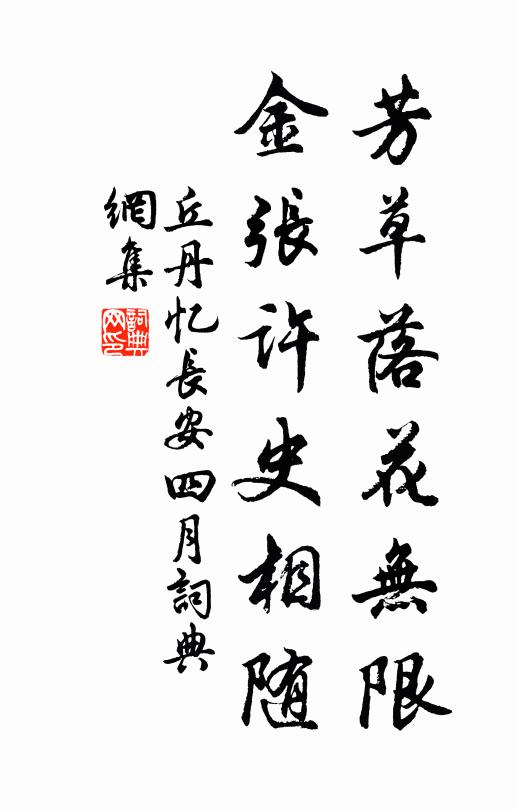 芳草落花無限
金張許史相随
丘丹忆長安四月詞典
網集
詞典
网印